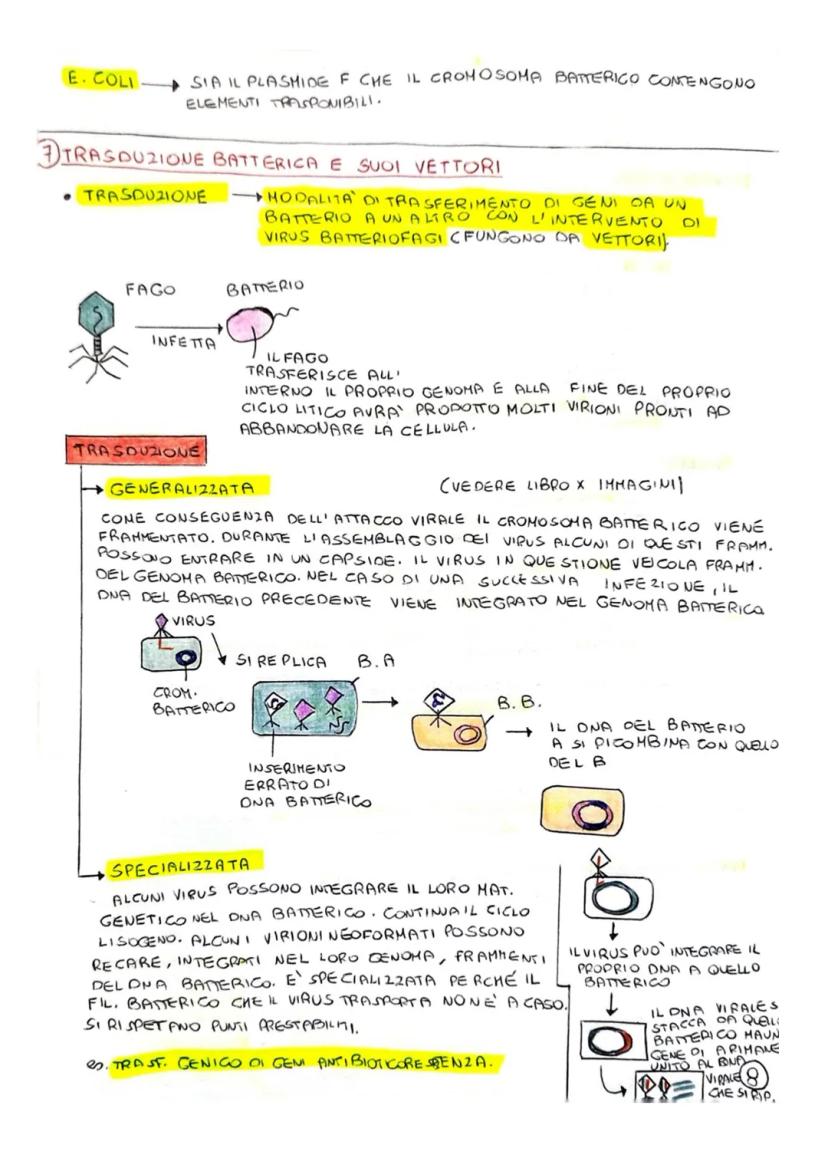 E. COLI → SIA IL PLASMIDE F CHE IL CROMOSOMA BATTERICO CONTENGONO
ELEMENTI TRASPONIBILI.
7) TRASDUZIONE BATTERICA E SUOI VETTORI
• TRASDUZIONE → MODALITA' DI TRASFERIMENTO DI GENI DA UN
BATTERIO A UN ALTRO CON L'INTERVENTO DI
VIRUS BATTERIOFAGI (FUNGONO DA VETTORI).
FAGO BATTERIO
INFETTA
IL FAGO
TRASFERISCE ALL'
INTERNO IL PROPRIO GENOMA E ALLA FINE DEL PROPRIO
CICLO LITICO AVRA' PRODOTTO MOLTI VIRIONI PRONTI AD
ABBANDONARE LA CELLULA.
TRASDUZIONE
→ GENERALIZZATA (VEDERE LIBRO X IMMAGINI)
COME CONSEGUENZA DELL'ATTACCO VIRALE IL CROMOSOMA BATTERICO VIENE
FRAMMENTATO. DURANTE L'ASSEMBLAGGIO DEI VIRUS ALCUNI DI QUESTI FRAMM.
POSSONO ENTRARE IN UN CAPSIDE. IL VIRUS IN QUESTIONE VEICOLA FRAMM.
DEL GENOMA BATTERICO. NEL CASO DI UNA SUCCESSIVA INFEZIONE, IL
DNA DEL BATTERIO PRECEDENTE VIENE INTEGRATO NEL GENOMA BATTERICO
VIRUS
SI REPLICA B.A
CROM.
BATTERICO
B.B.
→ IL DNA DEL BATTERIO
A SI RICOMBINA CON QUELLO
DEL B
INSERIMENTO
ERRATO DI
DNA BATTERICO
→ SPECIALIZZATA
ALCUNI VIRUS POSSONO INTEGRARE IL LORO MAT.
GENETICO NEL DNA BATTERICO. CONTINUA IL CICLO
LISOGENO. ALCUNI VIRIONI NEOFORMATI POSSONO
RECARE, INTEGRATI NEL LORO GENOMA, FRAMMENTI
DEL DNA BATTERICO. E' SPECIALIZZATA PERCHÉ IL
FIL. BATTERICO CHE IL VIRUS TRASPORTA NON E' A CASO.
SI RISPETTANO PUNTI PRESTABILITI.
es. TRASF. GENICO DI GENI ANTIBIOTICORESISTENZA.
IL VIRUS PUO' INTEGRARE IL
PROPRIO DNA A QUELLO
BATTERICO
IL DNA VIRALE S
STACCA DA QUELL
BATTERICO MA UN
GENE DI A RIMANE
UNITO AL DNA
VIRALE
CHE SI RIP.
8